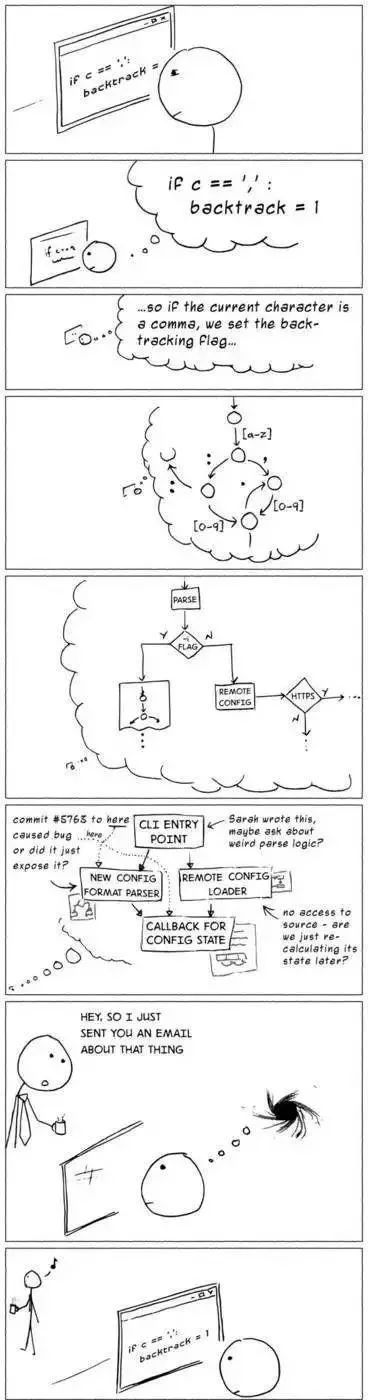 if c == ',':
backtrack =
if c == ',' :
backtrack = 1
...so if the current character is
a comma, we set the back-
tracking flag...
[a-z]
:
,
.
:
[0-9]
[0-9]
PARSE
Y
-i
FLAG
N
REMOTE
CONFIG
HTTPS
Y
N
commit #5763 to here
caused bug ... here
or did it just
expose it?
CLI ENTRY
POINT
Sarah wrote this,
maybe ask about
weird parse logic?
NEW CONFIG
FORMAT PARSER
REMOTE CONFIG
LOADER
CALLBACK FOR
CONFIG STATE
no access to
source - are
we just re-
calculating its
state later?
HEY, SO I JUST
SENT YOU AN EMAIL
ABOUT THAT THING
if c == ',':
backtrack = 1